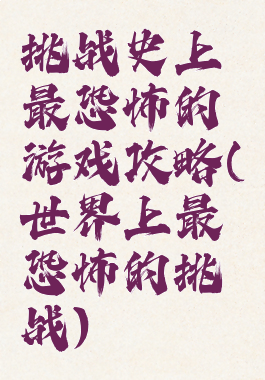 挑战史上
最恐怖的
游戏攻略(
世界上最
恐怖的挑
战)